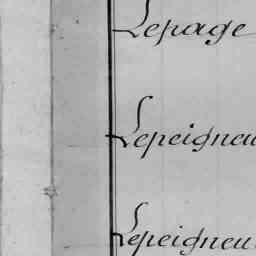 Lepage
Lepeigneu
Lepeigneu